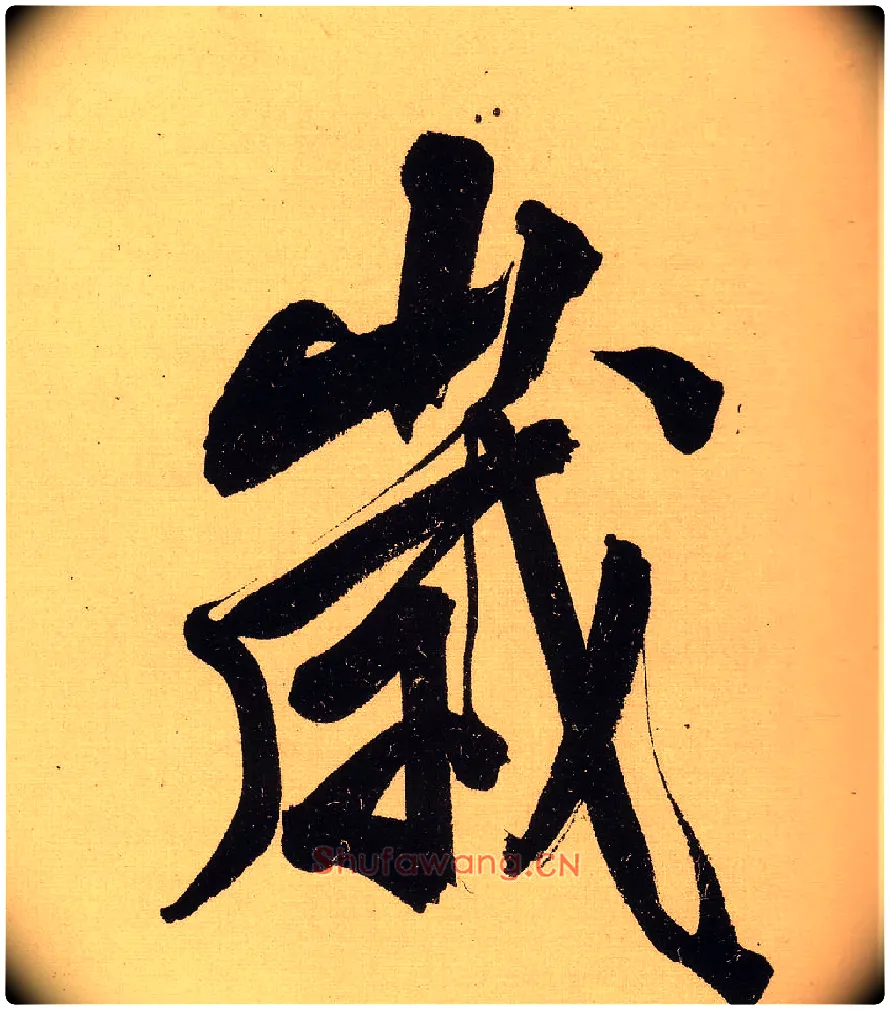 歲
Shufawang.CN